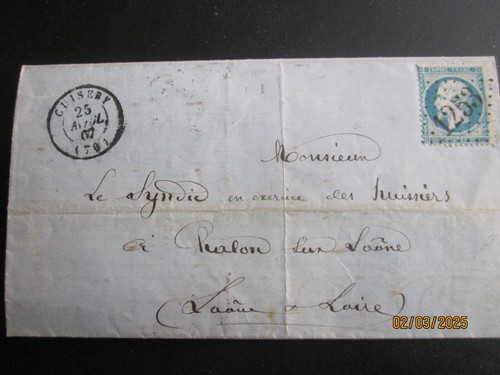 CUISERY
25
AVRIL
67
(70)
EMPIRE FRANC.
1253
Monsieur
Le Syndic en exercice des huissiers
à Chalon sur Saône
(Saône & Loire)
02/03/2025